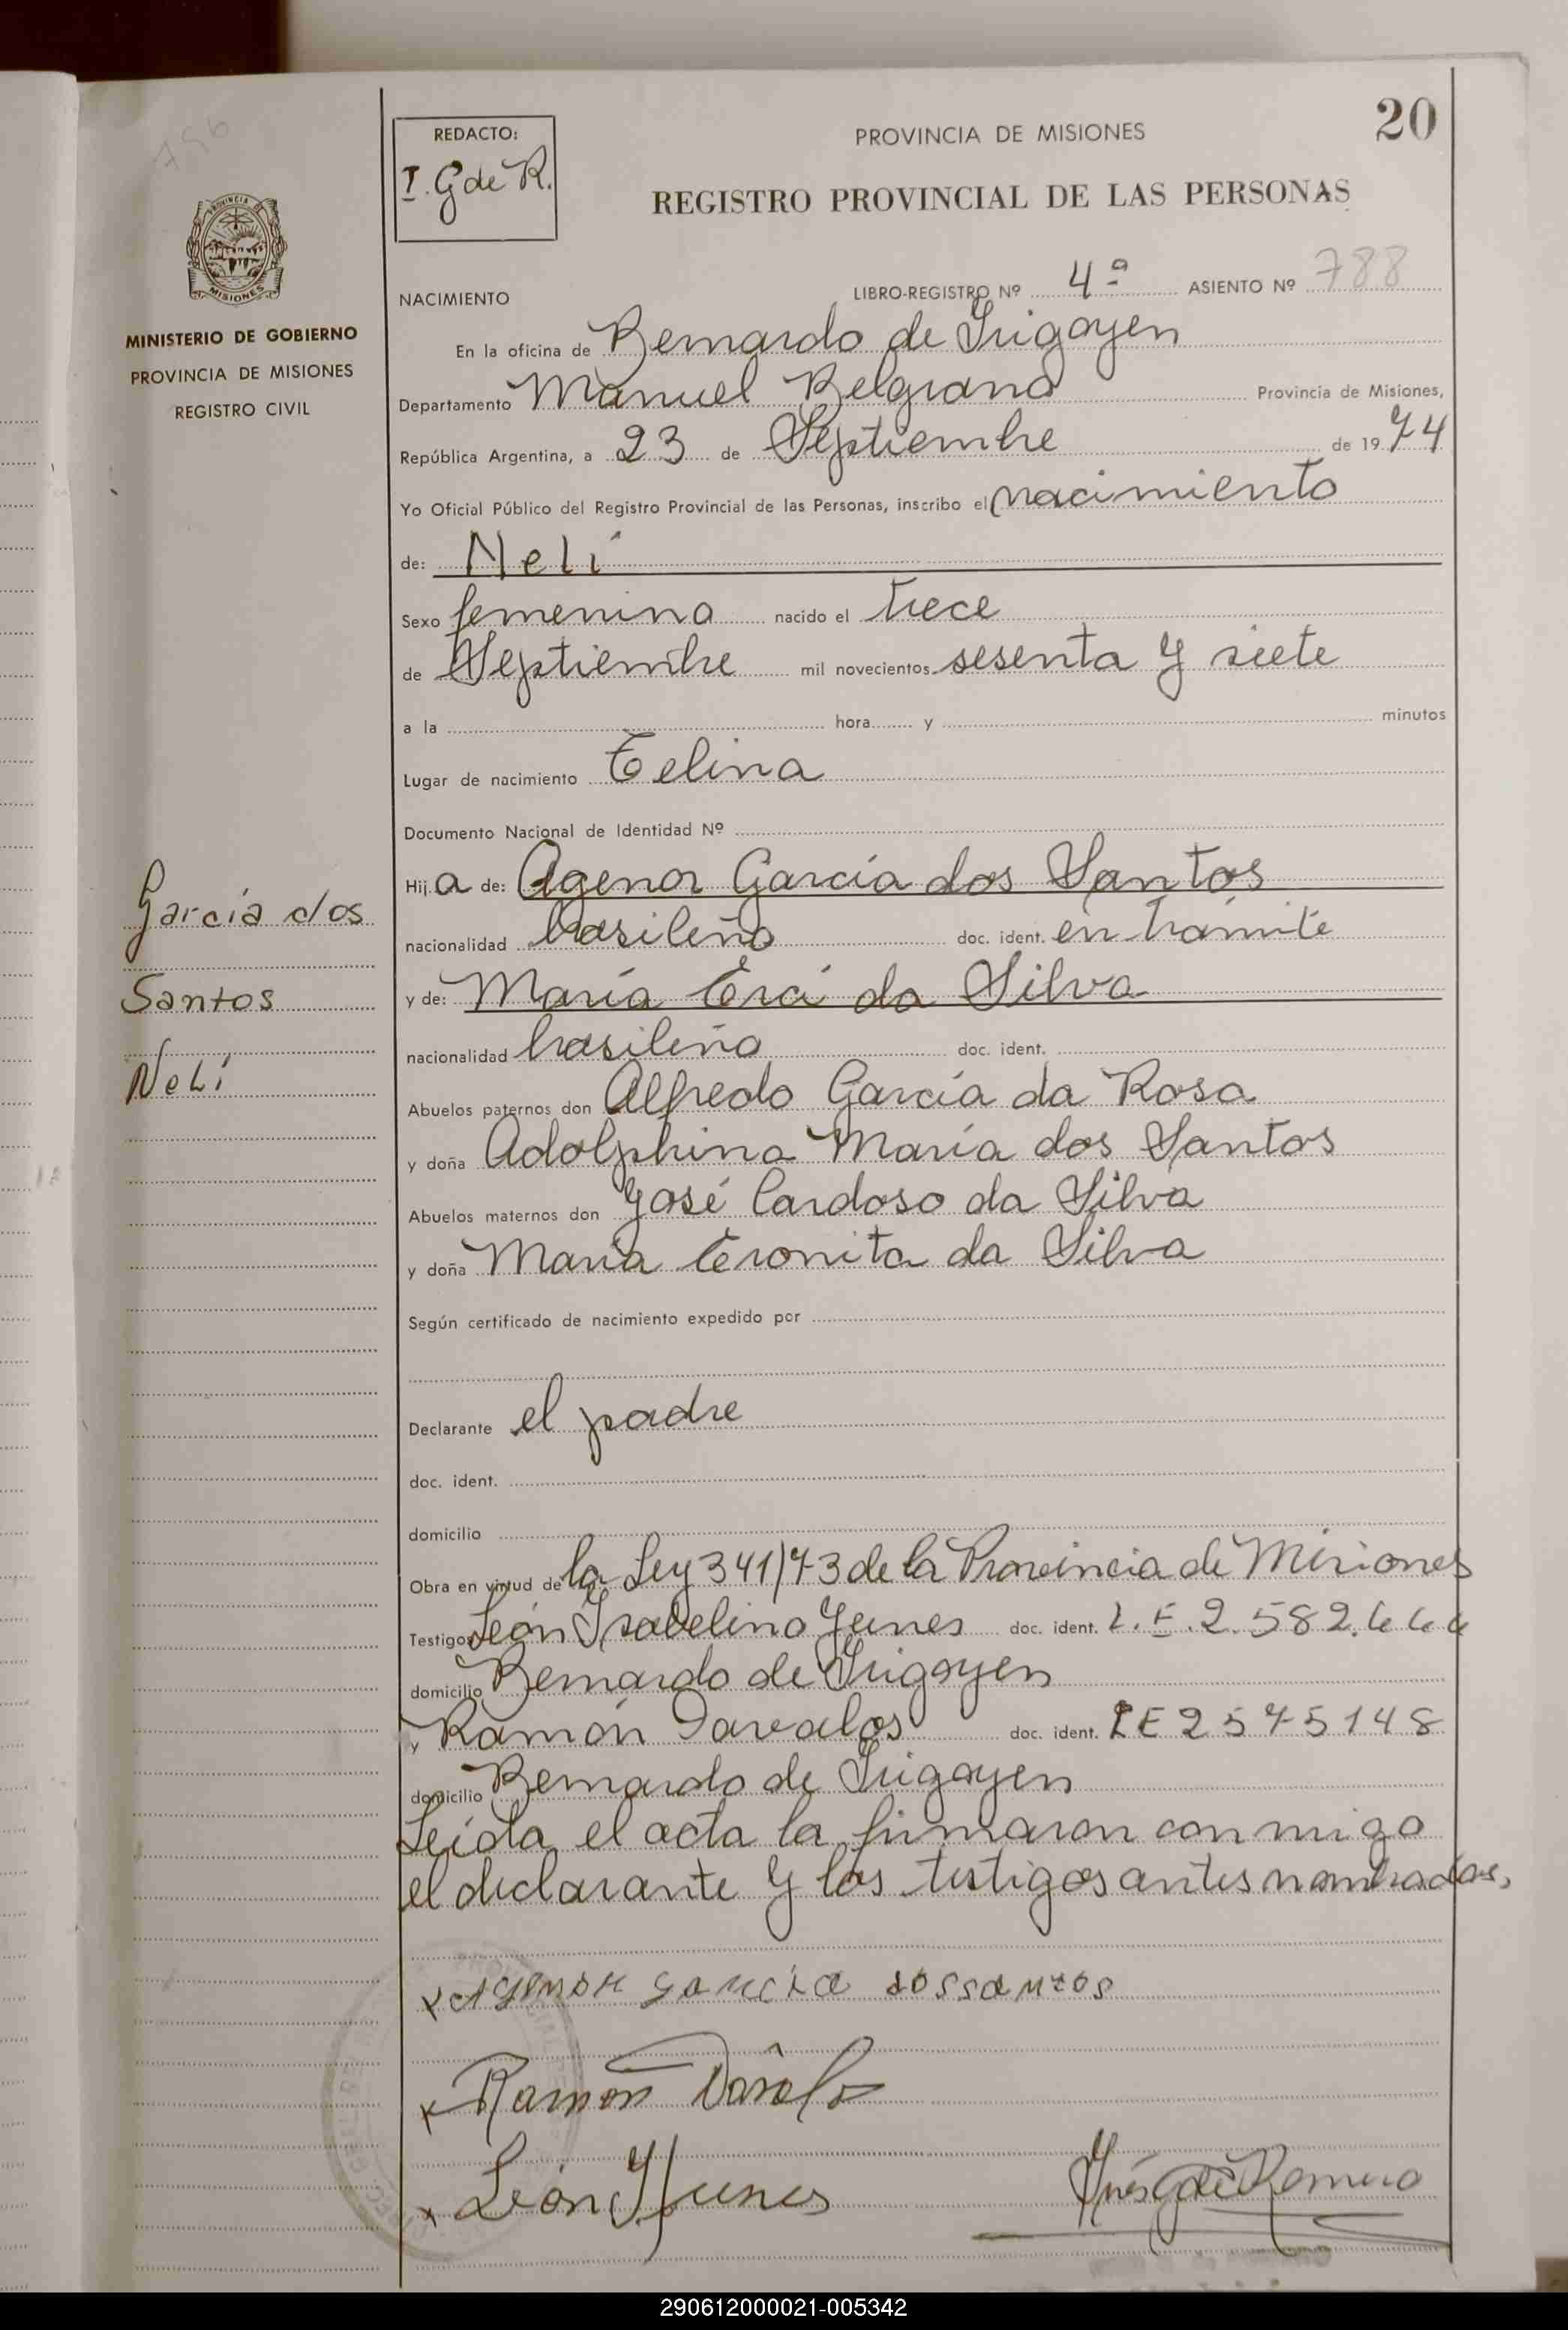 20
REDACTO:
I. G de R.
PROVINCIA DE MISIONES
REGISTRO PROVINCIAL DE LAS PERSONAS
MISIONES
MINISTERIO DE GOBIERNO
PROVINCIA DE MISIONES
REGISTRO CIVIL
NACIMIENTO LIBRO-REGISTRO Nº 4ª ASIENTO Nº 788
En la oficina de Bernardo de Irigoyen
Departamento Manuel Belgrano Provincia de Misiones,
República Argentina, a 23 de Septiembre de 1974
Yo Oficial Público del Registro Provincial de las Personas, inscribo el nacimiento
de: Nelí
Sexo femenino nacido el trece
de Septiembre mil novecientos sesenta y siete
a la hora y minutos
Lugar de nacimiento Celina
Documento Nacional de Identidad Nº
Hija de: Agenor García dos Santos
nacionalidad brasileño doc. ident. en trámite
y de: María Eraí da Silva
nacionalidad brasileña doc. ident.
Abuelos paternos don Alfredo García da Rosa
y doña Adolphina María dos Santos
Abuelos maternos don José Cardoso da Silva
y doña María Eronita da Silva
Según certificado de nacimiento expedido por
Declarante el padre
doc. ident.
domicilio
Obra en virtud de la Ley 341/73 de la Provincia de Misiones
Testigos León Isabelino Yunes doc. ident. L.E.2.582.666
domicilio Bernardo de Irigoyen
y Ramón Davalos doc. ident. LE 2575148
domicilio Bernardo de Irigoyen
Leída el acta la firmaron conmigo
el declarante y los testigos antes nombrados.
García dos
Santos
Nelí
x Agenor García dossantos
x Ramón Dávalo
x León Y Yunes
Inés G de Romero
290612000021-005342